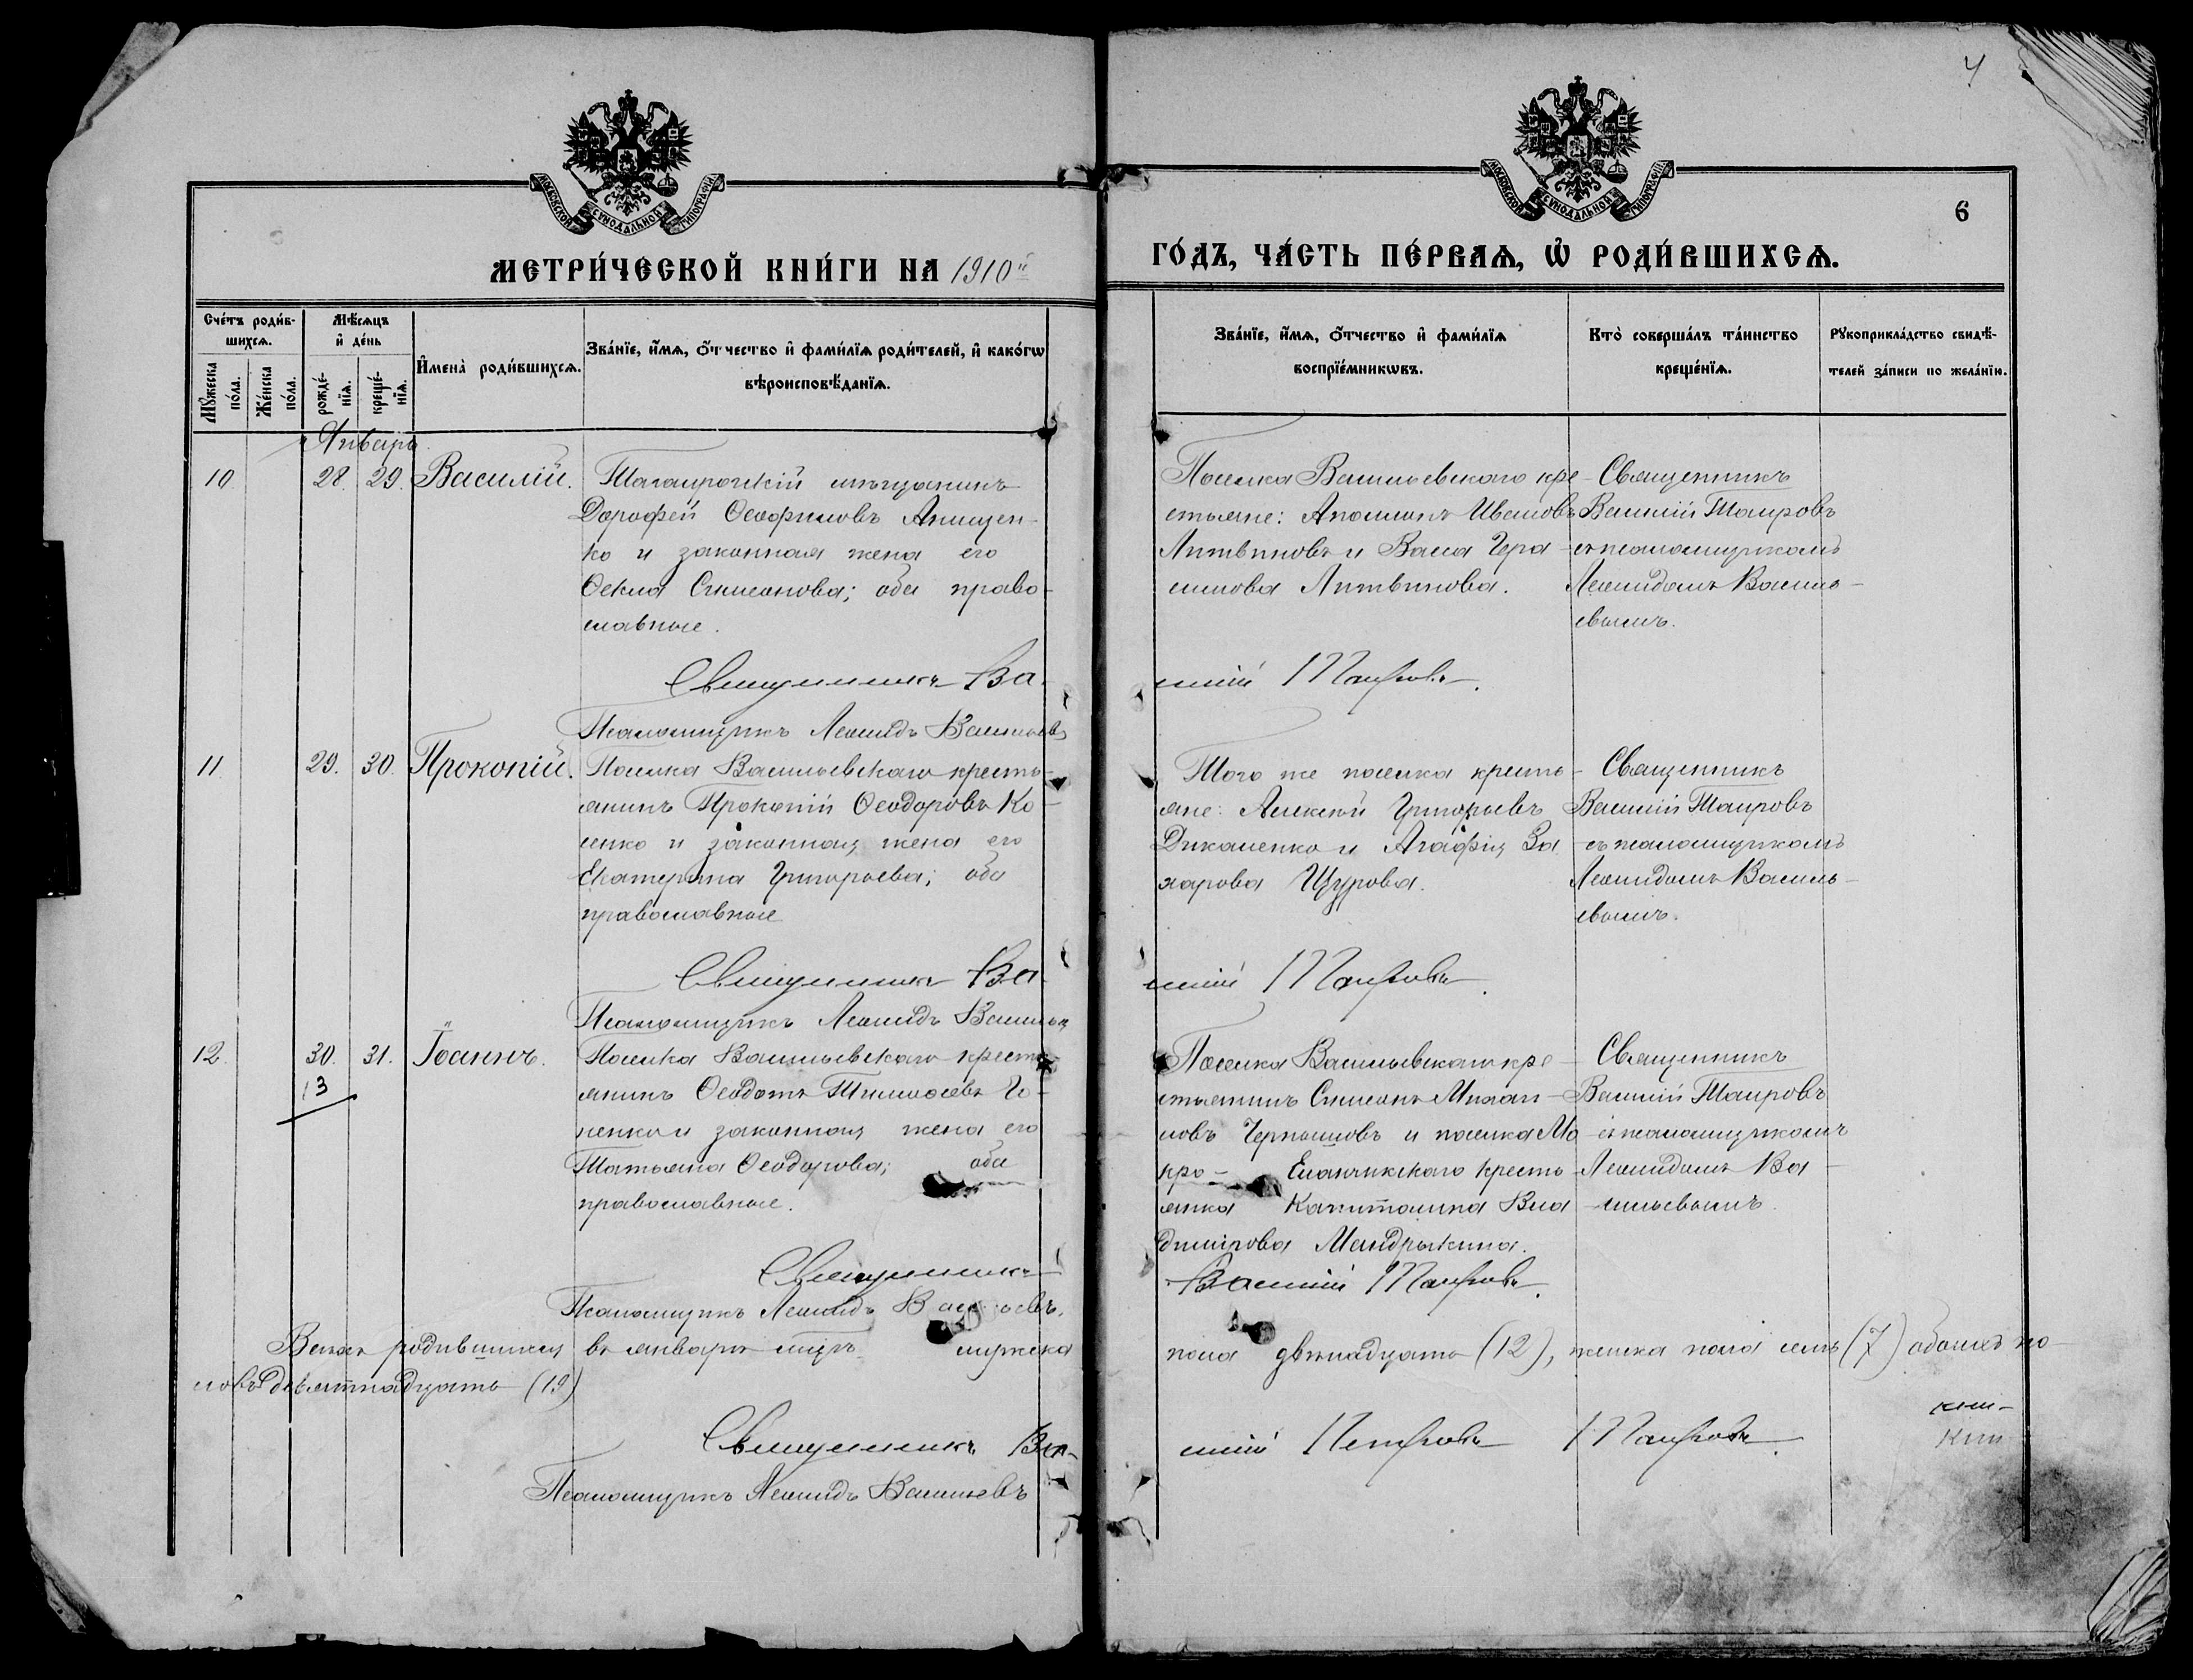 4
МОСКОВСКОЙ СѴНОДАЛЬНОЙ ТИПОГРАФІИ
МОСКОВСКОЙ СѴНОДАЛЬНОЙ ТИПОГРАФІИ
6
МЕТРИ́ЧЕСКОЙ КНИ́ГИ НА 1910й
ГО́ДЪ, ЧА́СТЬ ПЕ́РВАѦ, Ѡ҆ РОДИ́ВШИХСѦ.
Сче́тъ роди́в-
шихсѧ.
Мꙋжеска по́ла.
Же́нска по́ла.
Мѣ́сѧцъ
и҆ де́нь
рожде́-
нїѧ.
креще́-
нїѧ.
И҆мена̀ роди́вшихсѧ.
Зва́нїе, и҆́мѧ, ѻ҆́тчество и҆ фами́лїѧ роди́телей, и҆ како́гѡ
вѣроисповѣ́данїѧ.
Зва́нїе, и҆́мѧ, ѻ҆́тчество и҆ фами́лїѧ
воспрїе́мникѡвъ.
Кто̀ соверша́лъ та́инство
креще́нїѧ.
Рꙋкоприкла́дство свидѣ́-
телей за́писи по жела́нїю.
Январь
10 28. 29. Василій.
Таганрогскій мѣщанинъ
Дорофей Ѳеофиловъ Анищен-
ко и законная жена его
Ѳекла Симеонова; оба право-
славные.
Поселка Васильевскаго кре-
стьяне: Аполлонъ Ивановъ
Литвиновъ и Васса Гера-
симова Литвинова.
Священникъ
Василій Таировъ
съ псаломщикомъ
Леонидомъ Василь-
евымъ.
Священникъ Ва-
силій Таировъ.
Псаломщикъ Леонидъ Васильевъ
11 29. 30. Прокопій.
Поселка Васильевскаго кресть-
янинъ Прокопій Ѳеодоровъ Ко-
ленко и законная жена его
Екатерина Григорьева; оба
православные
Того же поселка кресть-
яне: Алексѣй Григорьевъ
Дикаленко и Агафія За-
харова Щурова.
Священникъ
Василій Таировъ
съ псаломщикомъ
Леонидомъ Василь-
евымъ.
Священникъ Ва-
силій Таировъ.
Псаломщикъ Леонидъ Васильев
12. 30. 31. Іоаннъ.
13
Поселка Васильевскаго кресть-
янинъ Ѳеодотъ Тимоѳеевъ Го-
ненко и законная жена его
Татьяна Ѳеодорова; оба
православные.
Поселка Васильевскаго кре-
стьянинъ Симеонъ Михаи-
ловъ Чернышовъ и поселка Мо-
кро- Еланчикскаго кресть-
янка Капитолина Вла-
димірова Мандрыкина.
Священникъ
Василій Таировъ
съ псаломщикомъ
Леонидомъ Ва-
сильевымъ.
Священникъ
Василій Таировъ.
Псаломщикъ Леонидъ Васильевъ.
Всѣхъ родившихся въ январѣ мцѣ мужеска
пола двѣнадцать (12), женска пола семь (7) обоихъ по-
ловъ девятнадцать (19)
Священникъ Ва-
силій Петровъ Таировъ.
Псаломщикъ Леонидъ Васильевъ